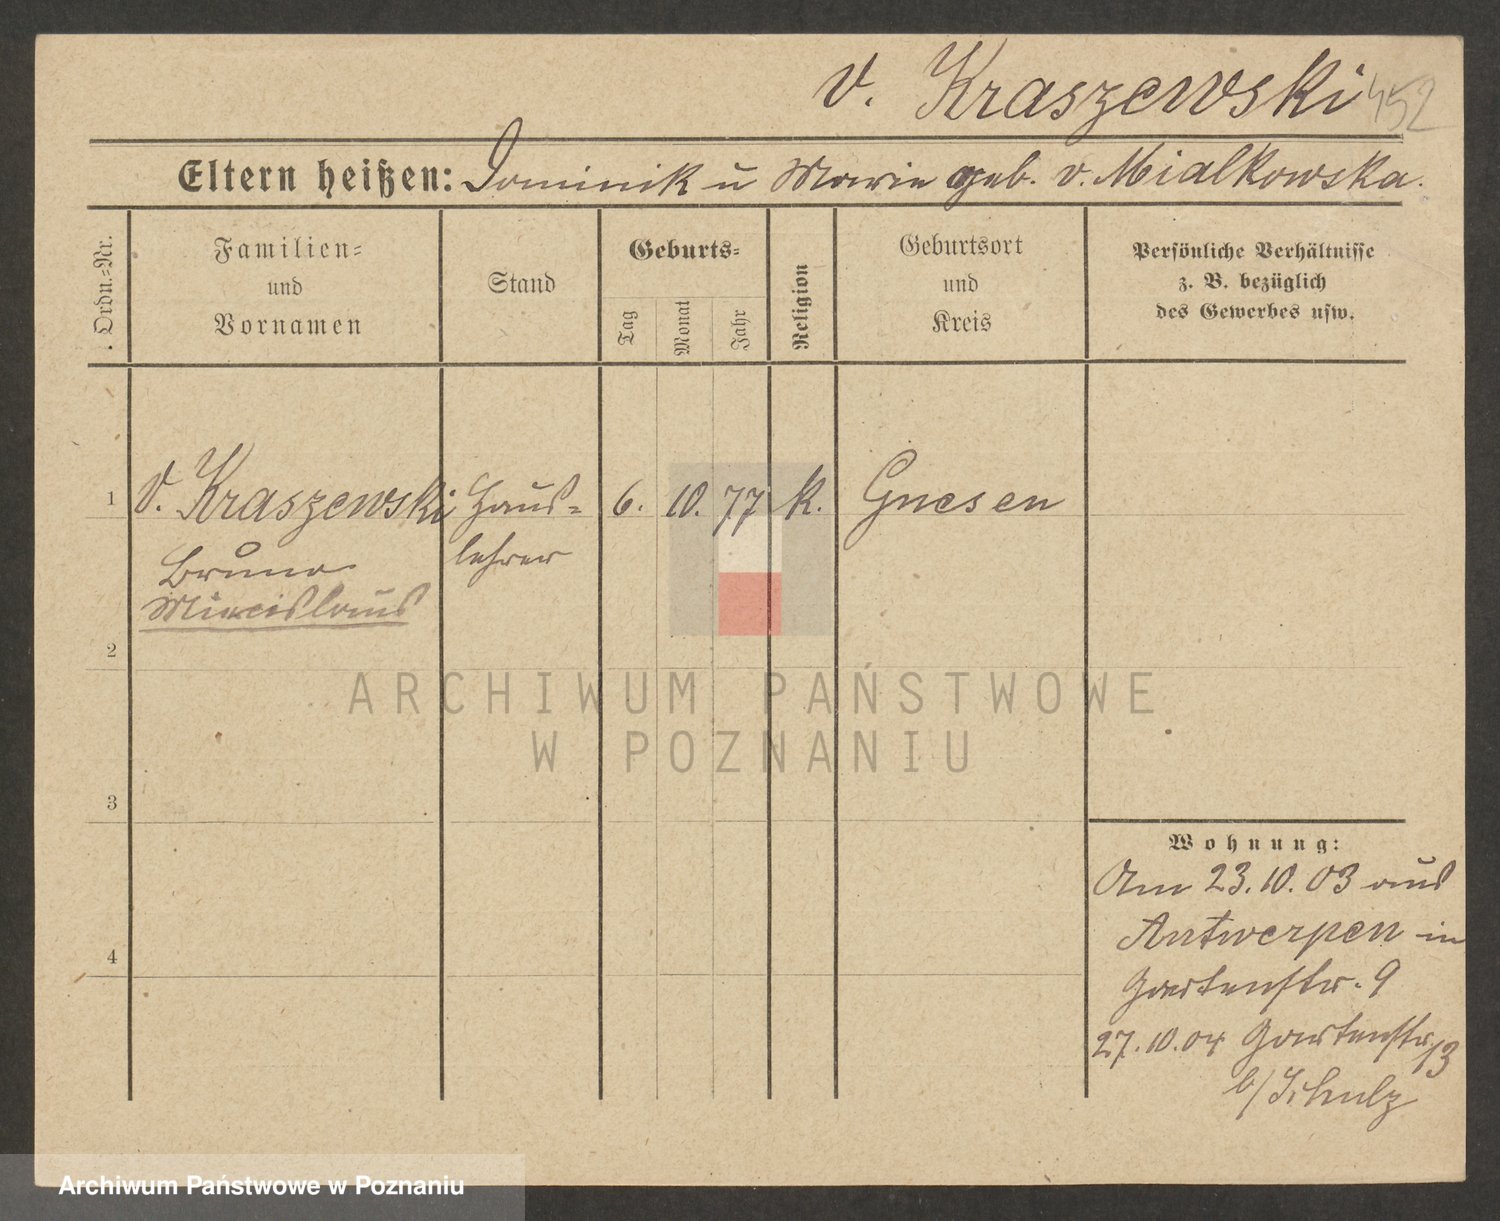 v. Kraszewski 452
Eltern heißen: Dominik u Marie geb. v. Mialkowska.
Ordn.-Nr.
Familien-
und
Vornamen
Stand
Geburts-
Tag
Monat
Jahr
Religion
Geburtsort
und
Kreis
Persönliche Verhältnisse
z. B. bezüglich
des Gewerbes usw.
1 v. Kraszewski Haus- 6. 10. 77 k. Gnesen
Bruno lehrer
Miecislaus
2
ARCHIWUM PAŃSTWOWE
W POZNANIU
3
Wohnung:
Am 23.10.03 aus
Antwerpen in
4
Gartenstr. 9
27.10.04 Gartenstr. 13
b/Schulz
Archiwum Państwowe w Poznaniu